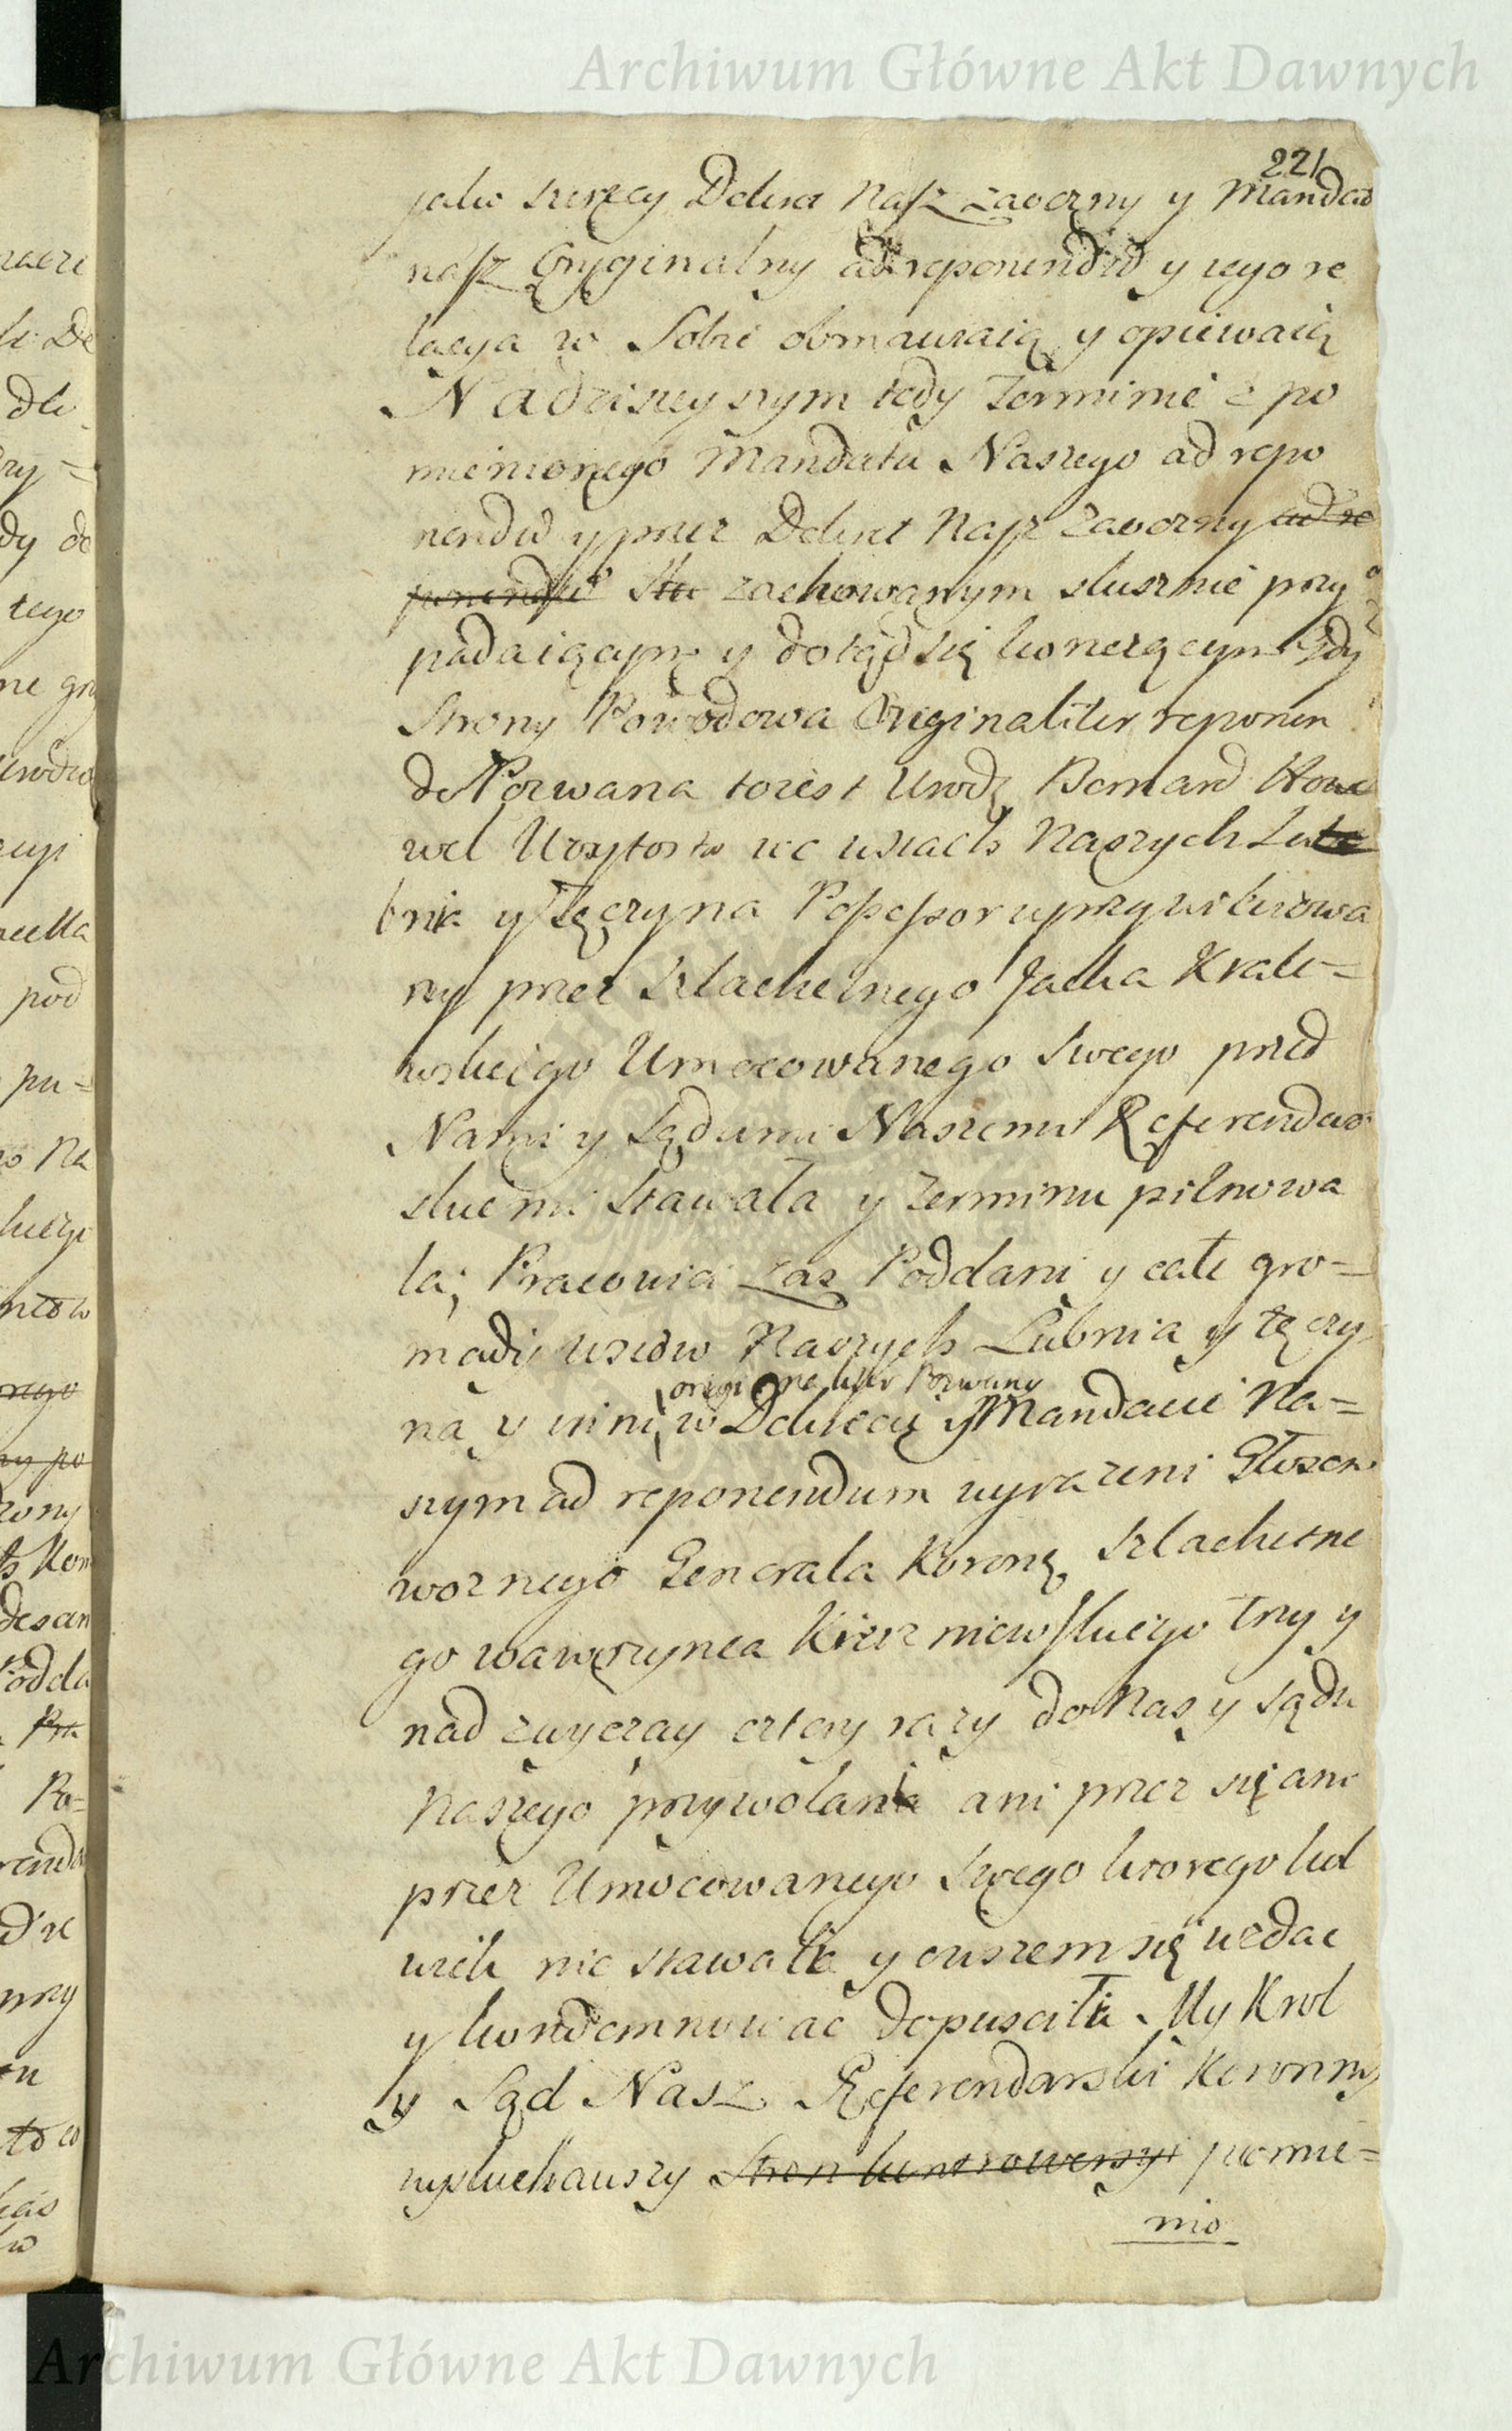 Archiwum Główne Akt Dawnych
221
jako szerzey Dekret Nasz zaoczny y Mandat
nasz Oryginalny ad reponendũ y iego re
lacya w Sobie obmawiaią y opiewaią
Na dzisieyszym tedy Terminie z po
mienionego Mandatu Naszego ad repo
nendũ y przez Dekret Nasz zaoczny ad re
ponendũ Stu zachowanym slusznie przy
padaiącym y dotąd się konczącym Gdy
Strony Powodowa Originaliter reponen
do Pozwana to iest Urodz Bernard
wel we wsiach Naszych Lub
bnia y Tęczyna Possessor uprzywileiowa
ny przez Szlachetnego Jacka Krale=
wskiego Umocowanego Swego przed
Nami y Sądami Naszemi Referendar
skiemi Stawała y Terminu pilnowa
la; Pracowici zas Poddani y całe gro=
mady wsiow Naszych Lubnia y tęczy
originaliter Pozwany
na y inni w Dekrecie y Mandacie Na=
szym ad reponendum wyrazeni Głosem
woznego Generała Koronę Szlachetne
go wawrzynca Kierzniewskiego trzy y
nad zwyczay cztery razy do Nas y sądu
Naszego przywołani ani przez się ani
przez Umocowanego Swego ktorego kol
wiek nie stawali y owszem się wzdac
y kondemnowac dopuscili My Krol
y Sąd Nasz Referendarski Koronny
wysłuchawszy Stron kontrowersyi pomie=
nio
Archiwum Główne Akt Dawnych